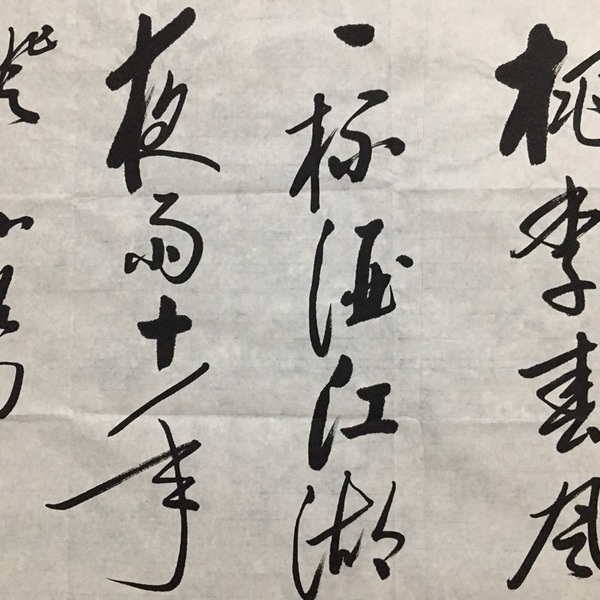 桃李春风
一杯酒江湖
夜雨十年
灯